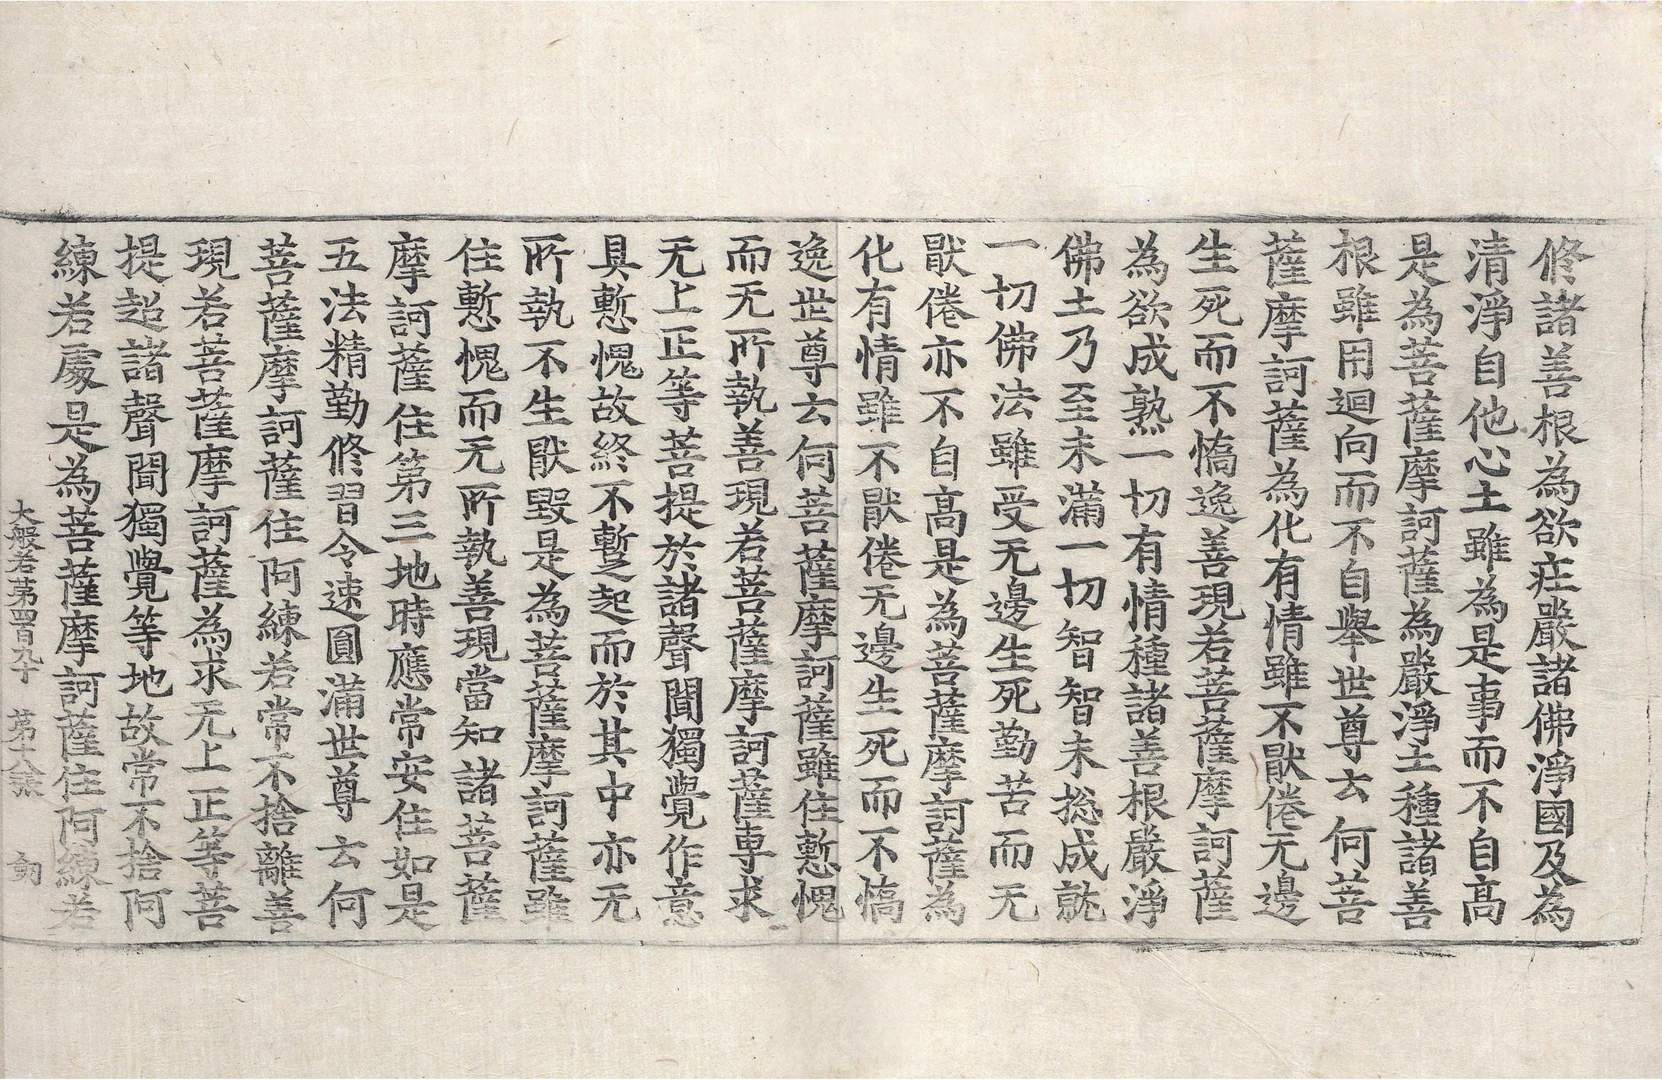 修諸善根為欲庄嚴諸佛淨國及為
清淨自他心土雖為是事而不自高
是為菩薩摩訶薩為嚴淨土種諸善
根雖用迴向而不自舉世尊云何菩
薩摩訶薩為化有情雖不猒倦无邊
生死而不憍逸善現若菩薩摩訶薩
為欲成熟一切有情種諸善根嚴淨
佛土乃至未滿一切智智未捴成就
一切佛法雖受无邊生死勤苦而无
猒倦亦不自高是為菩薩摩訶薩為
化有情雖不猒倦无邊生死而不憍
逸世尊云何菩薩摩訶薩雖住慙愧
而无所執善現若菩薩摩訶薩專求
无上正等菩提於諸聲聞獨覺作意
具慙愧故終不蹔起而於其中亦无
所執不生猒毀是為菩薩摩訶薩雖
住慙愧而无所執善現當知諸菩薩
摩訶薩住第三地時應常安住如是
五法精勤修習令速圓滿世尊云何
菩薩摩訶薩住阿練若常不捨離善
現若菩薩摩訶薩為求无上正等菩
提超諸聲聞獨覺等地故常不捨阿
練若處是為菩薩摩訶薩住阿練若
大般若第四百九十 第十八張